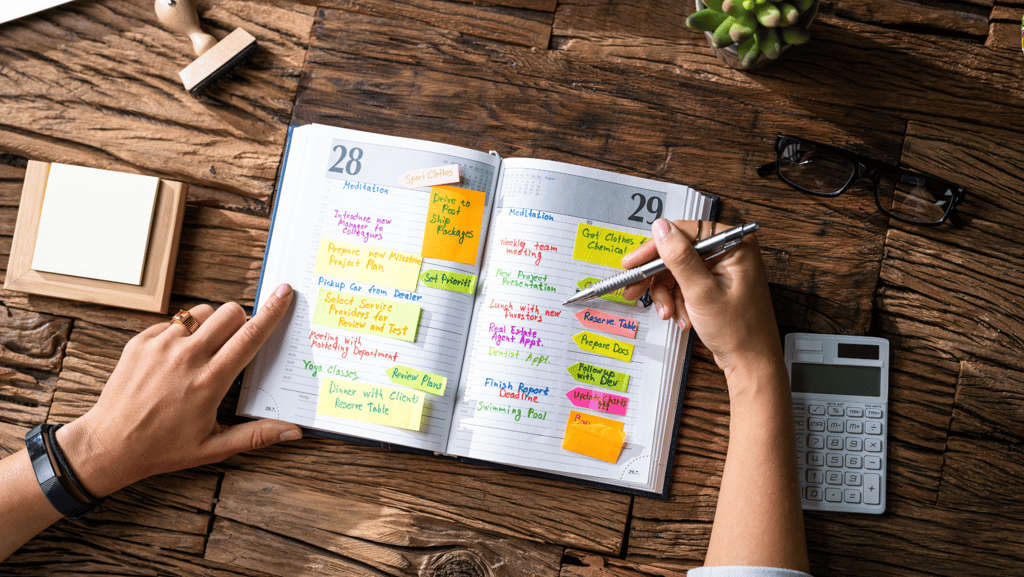 28
Sport Clothes
Meditation
Drive to
Post
Ship
Packages
Introduce new
Manager to
Colleagues
Prepare new Milestone
Project Plan
Set Prioriti
Pickup Car from Dealer
Select Service
Providers for
Review and Test
Meeting with
Marketing Department
Yoga Classes
Review Plans
Dinner with Clients
Reserve Table
29
Meditation
Get Clothes
Chemical
Weekly team
meeting
New Project
Presentation
Lunch with new
Investors
Reserve Table
Real Estate
Agent Appt.
Prepare Docs
Dentist Appt.
Followup
with Dev
Finish Report
Deadline
Update Charts
!!!
Swimming Pool